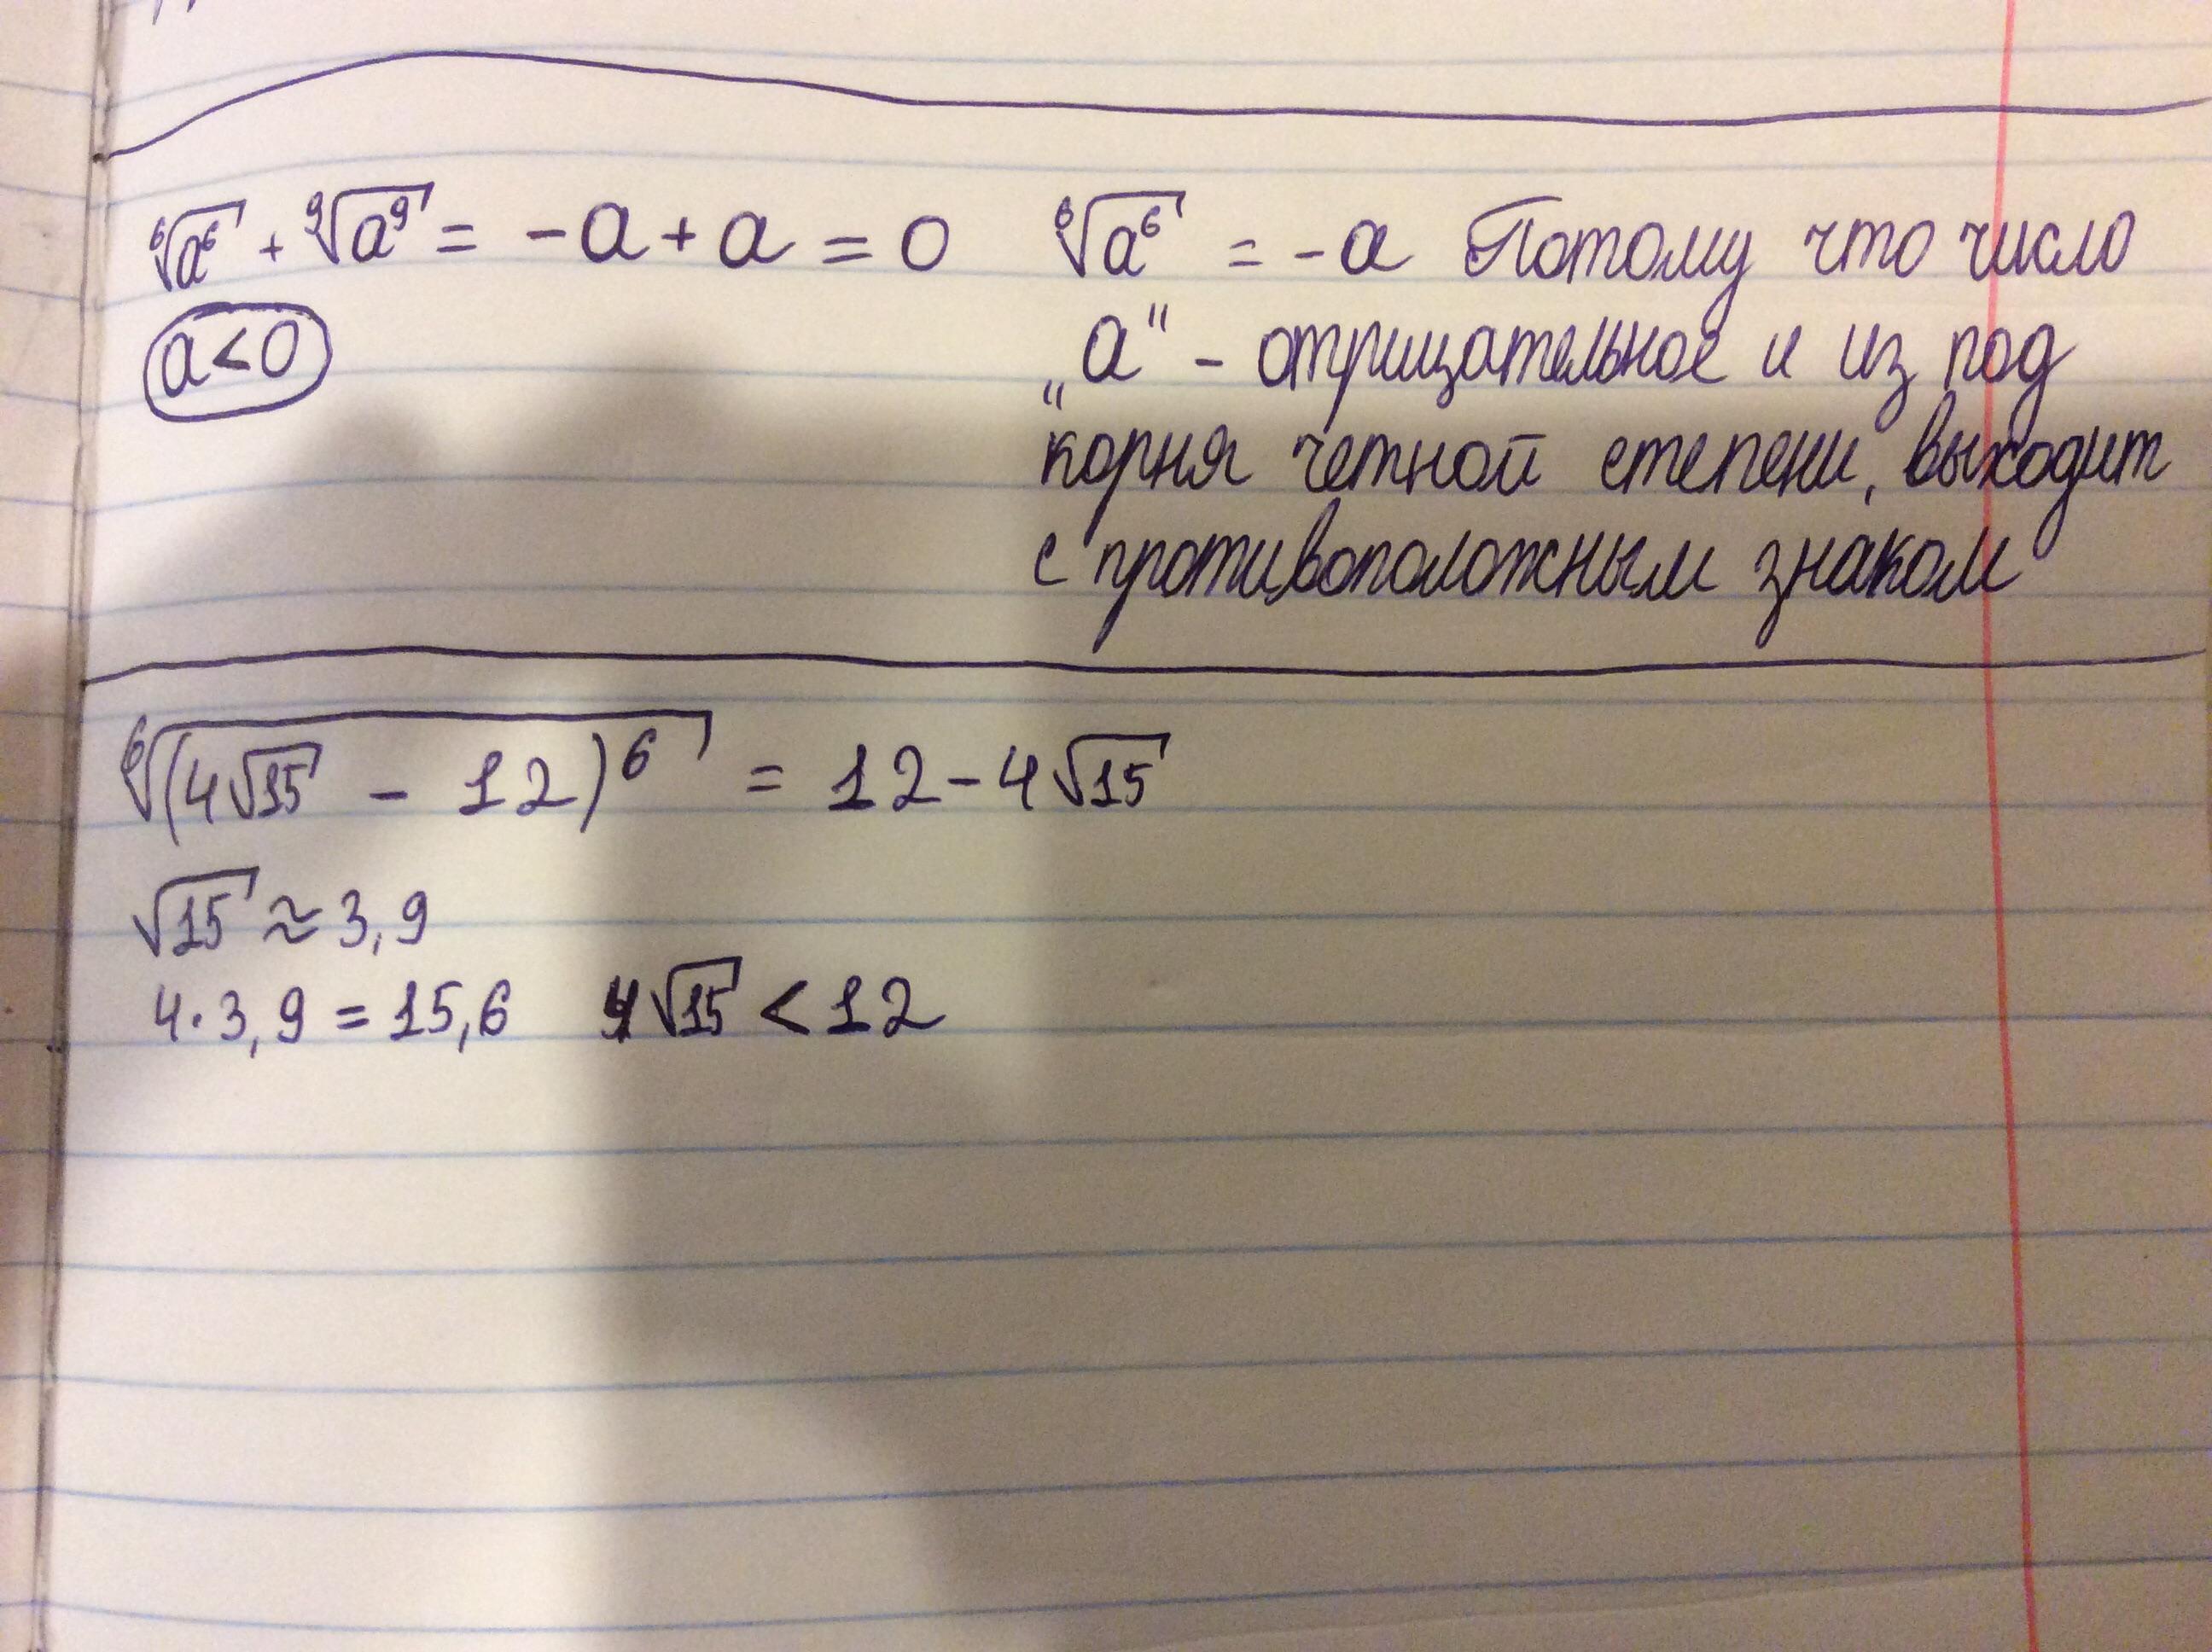 ⁶√a⁶ + ⁹√a⁹ = -a + a = 0 ⁶√a⁶ = -a Потому что число
a<0 „a“ - отрицательное и из под
корня четной степени, выходит
с противоположным знаком
⁶√(4√15 - 12)⁶ = 12 - 4√15
√15 ≈ 3,9
4·3,9 = 15,6 4√15 < 12